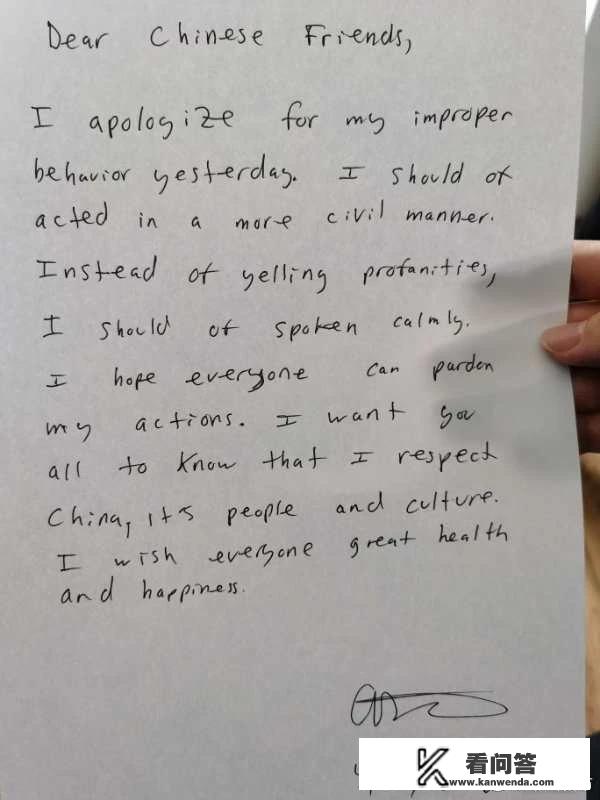 Dear Chinese Friends,
I apologize for my improper
behavior yesterday. I should of
acted in a more civil manner.
Instead of yelling profanities,
I should of spoken calmly.
I hope everyone can pardon
my actions. I want you
all to know that I respect
China, it's people and culture.
I wish everyone great health
and happiness.
看问答
www.kanwenda.com